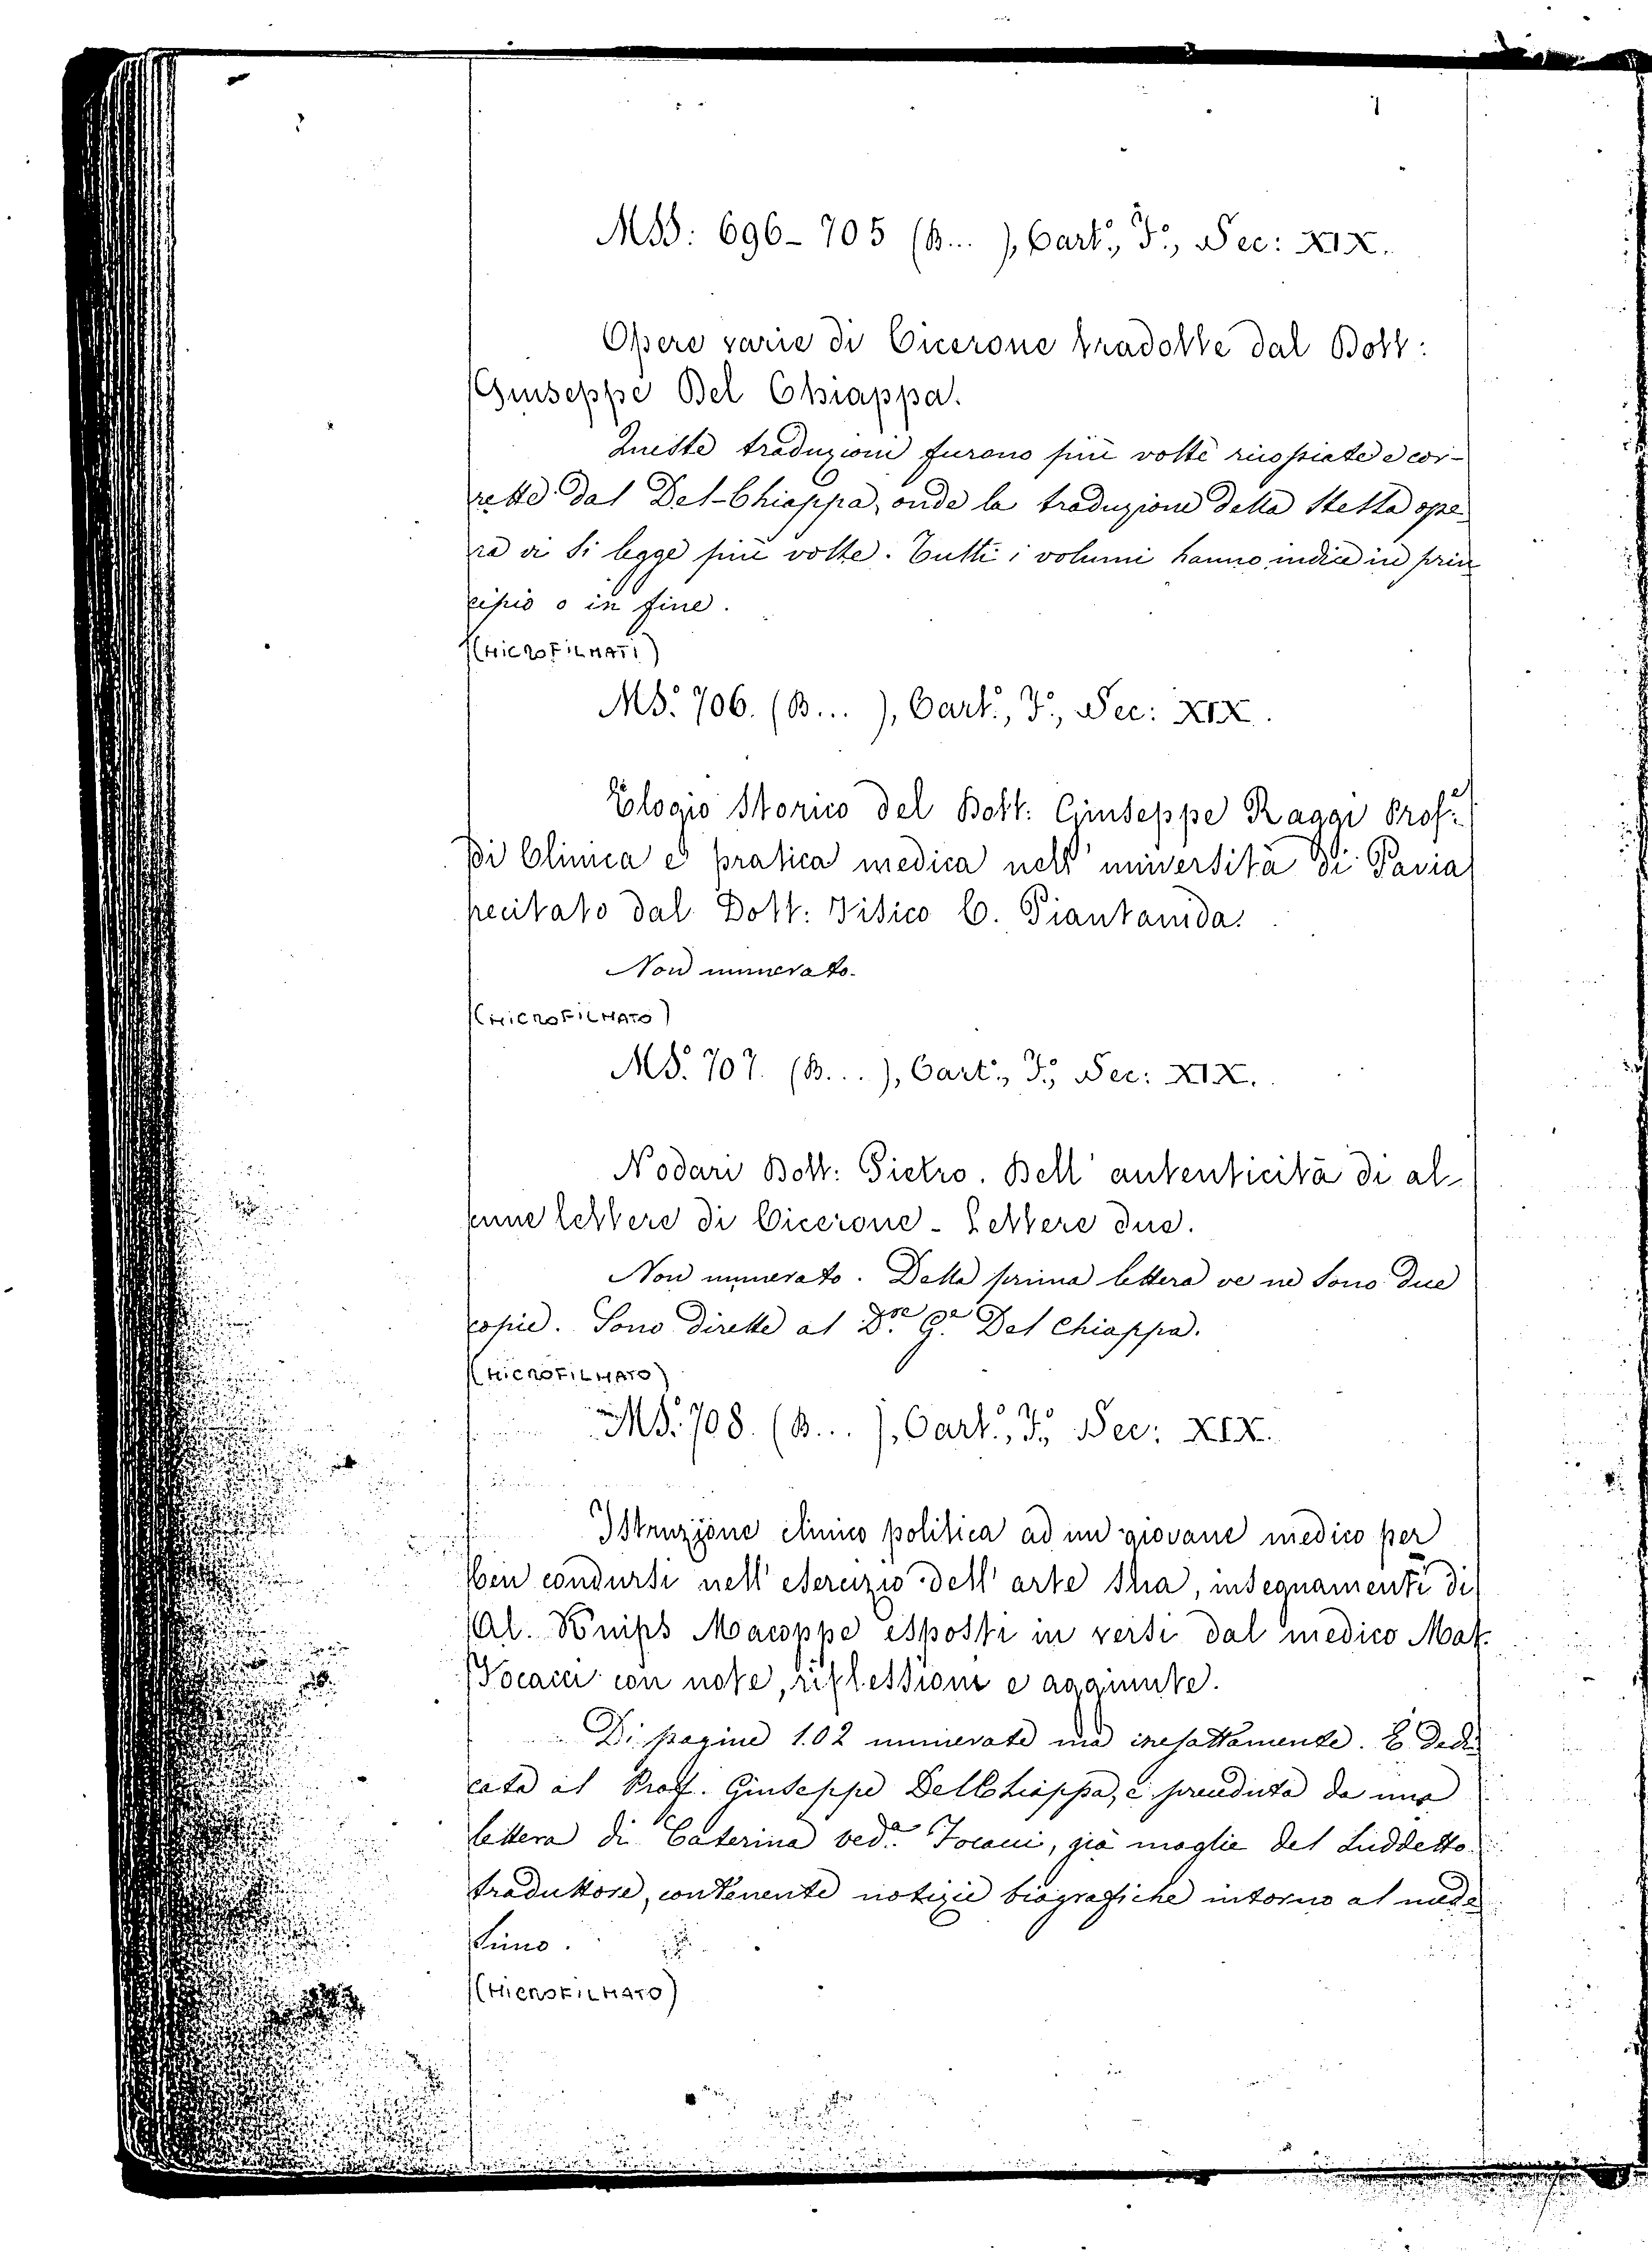 MSS: 696-705 (B... ), Cart°, F°, Sec: XIX.
Opere varie di Cicerone tradotte dal Dott:
Giuseppe Del Chiappa.
Queste traduzioni furono più volte ricopiate e cor-
rette dal Del-Chiappa, onde la traduzione della stessa ope
ra vi si legge più volte. Tutti i volumi hanno indice in prin
cipio o in fine.
(MICROFILMATI)
MS. 706. (B... ), Cart°, F°, Sec: XIX.
Elogio storico del Dott: Giuseppe Raggi Prof.e
di Clinica e pratica medica nell' università di Pavia
recitato dal Dott: Fisico C. Piantanida.
Non numerato.
(MICROFILMATO)
MS. 707. (B...), Cart°, F°, Sec: XIX.
Nodari Dott: Pietro. Dell' autenticità di al-
cune lettere di Cicerone - Lettere due.
Non numerato. Della prima lettera ve ne sono due
copie. Sono dirette al D.re G.e Del Chiappa.
(MICROFILMATO)
MS. 708. (B... ), Cart°, F°, Sec: XIX.
Istruzione clinico politica ad un giovane medico per
ben condursi nell' esercizio dell' arte sua, insegnamenti di
Al. Knips Macoppe esposti in versi dal medico Mat.
con note, riflessioni e aggiunte.
Di pagine 102 numerate ma inesattamente. È dedi
cata al Prof. Giuseppe DelChiappa, e preceduta da una
lettera di Caterina ved.a già moglie del suddetto
traduttore, contenente notizie biografiche intorno al mede
simo.
(MICROFILMATO)